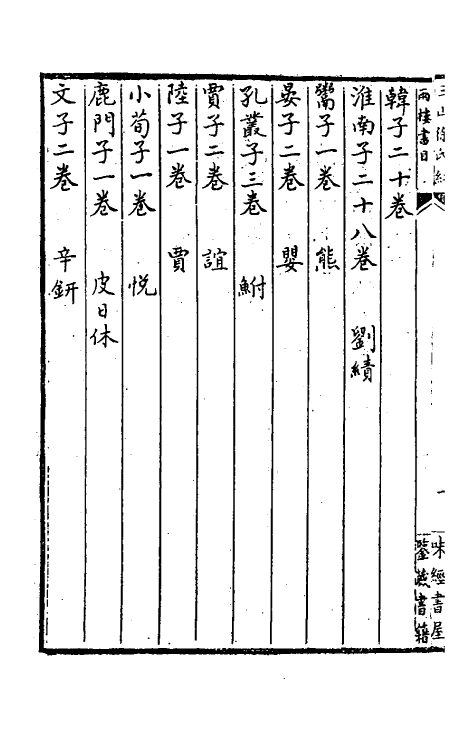 韓子二十卷
淮南子二十八卷　劉績
鬻子一卷　熊
晏子二卷　嬰
孔叢子三卷　鮒
賈子二卷　誼
陸子一卷　賈
小荀子一卷　悅
鹿門子一卷　皮日休
文子二卷　辛鈃
雨樓書目
味經書屋
鑒藏書籍